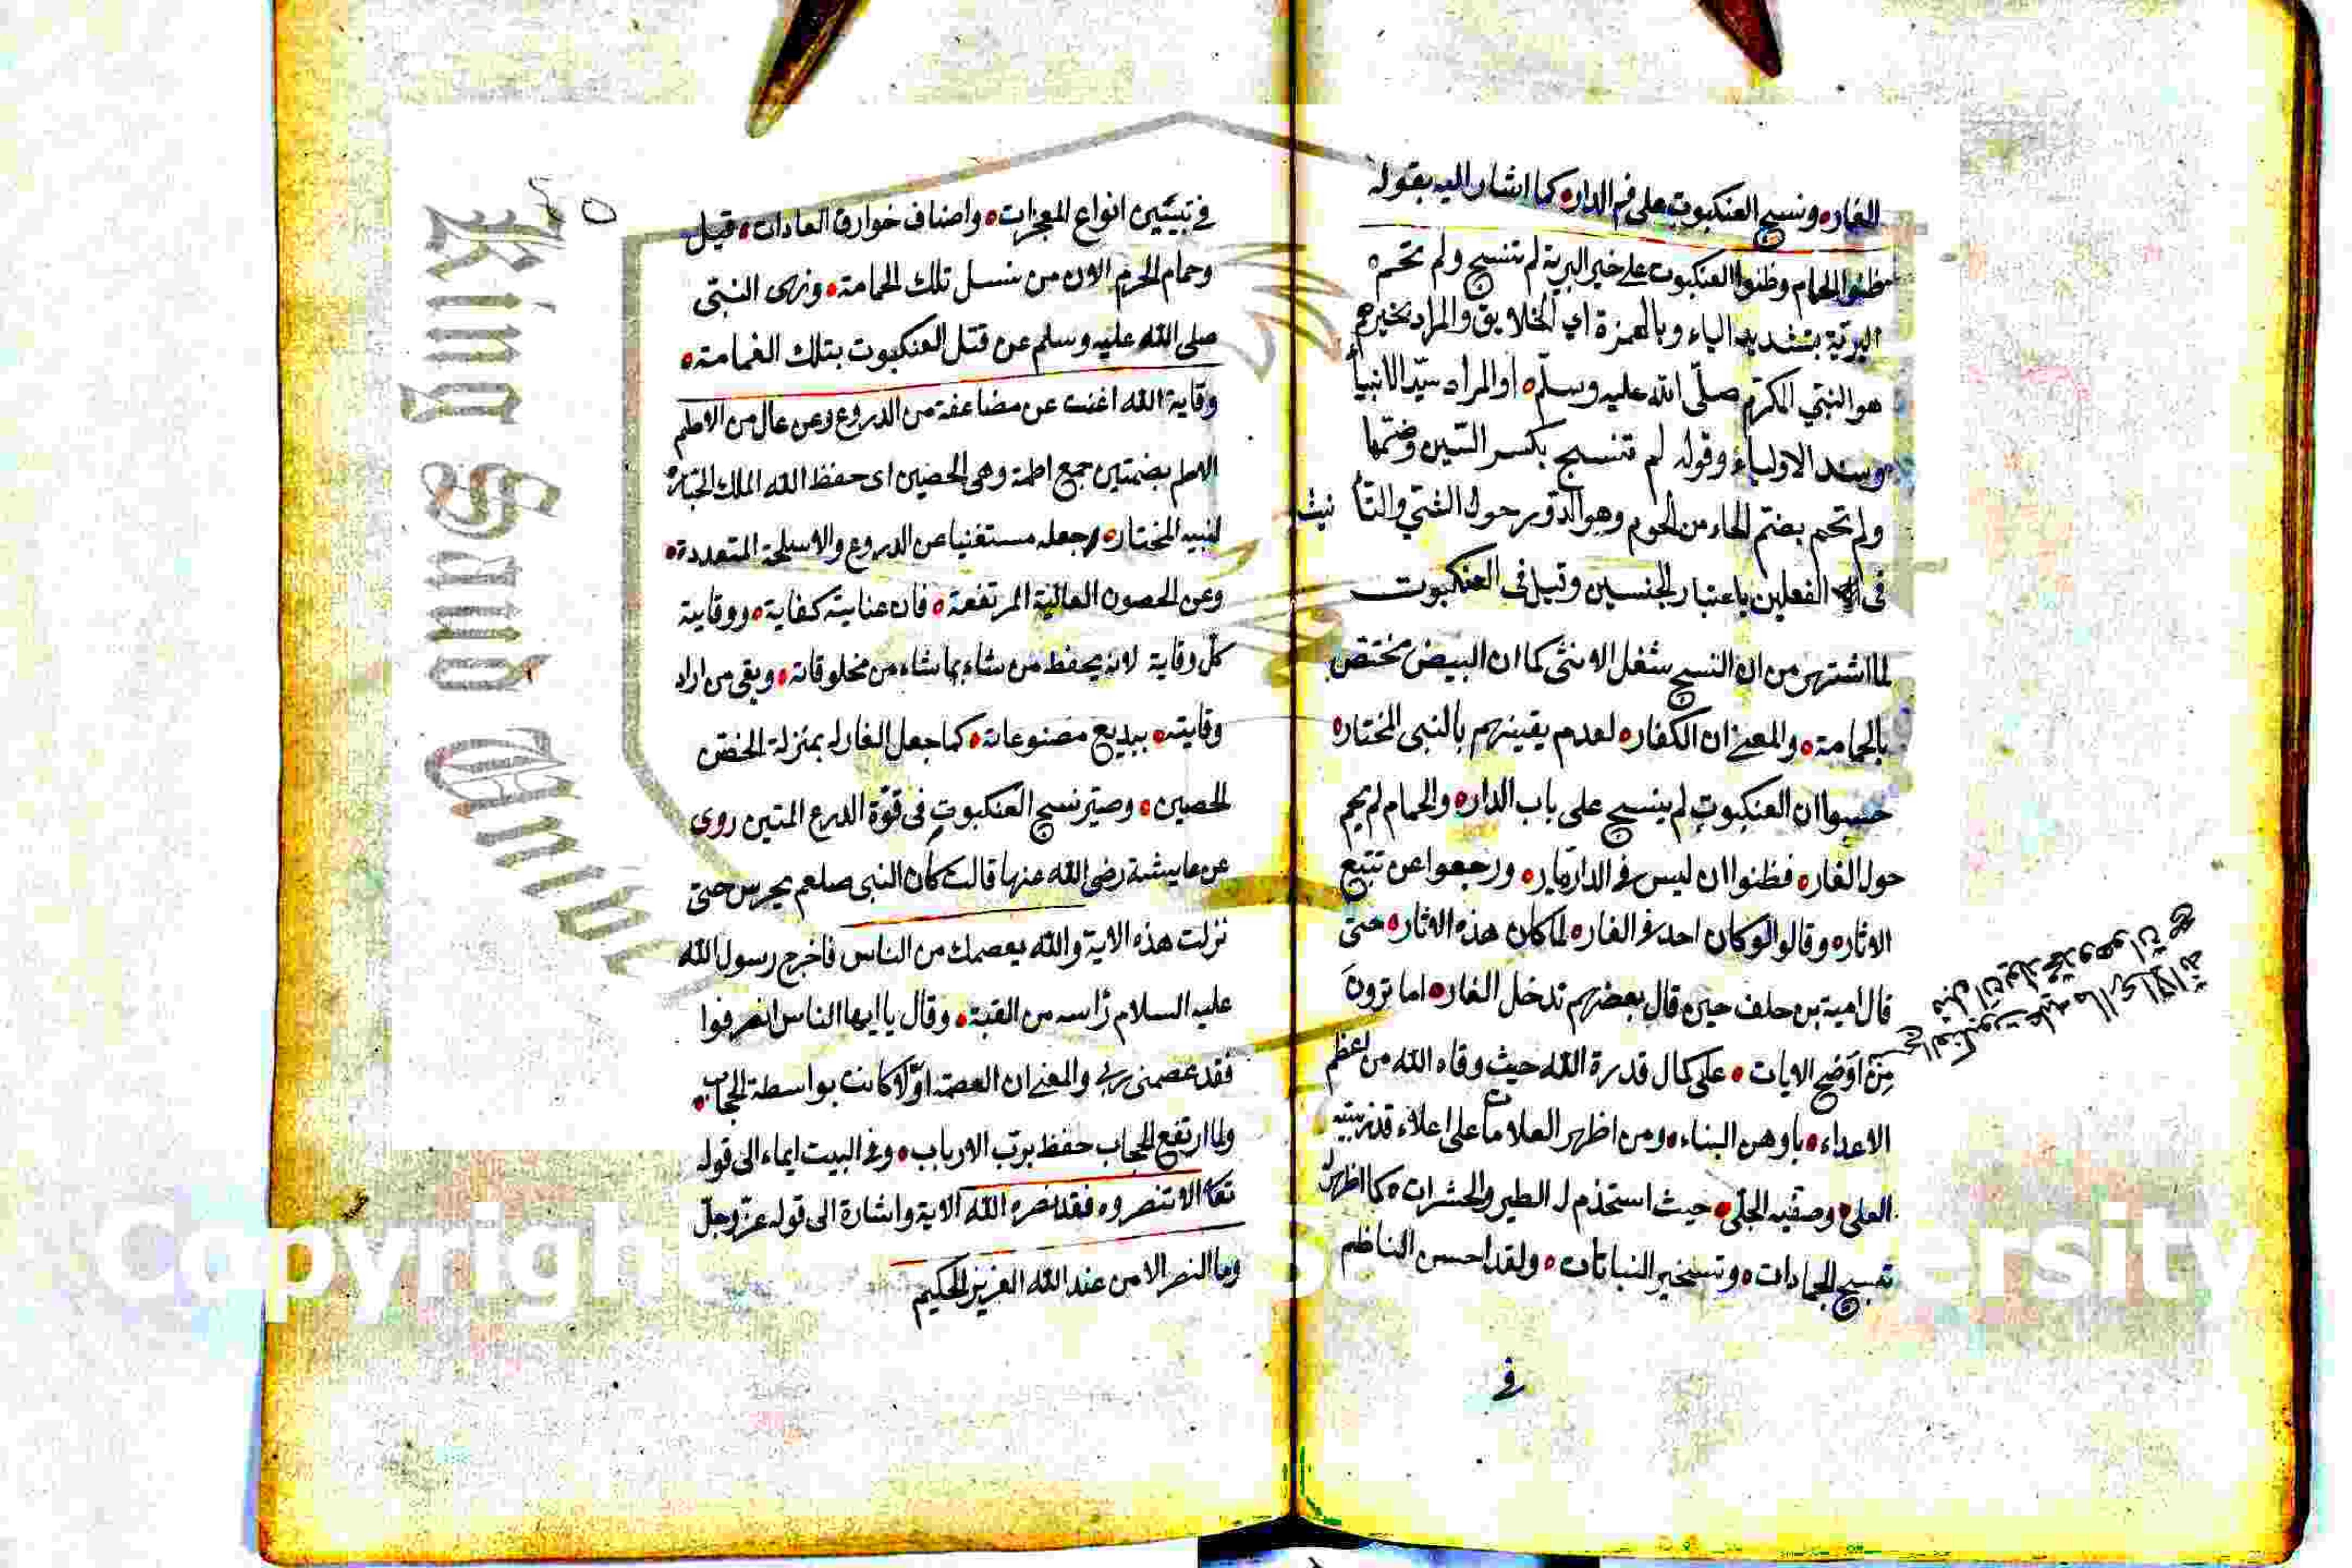 الغار ونسج العنكبوت على فم الدار كما اشار اليه بقوله
ظنوا الحمام وظنوا العنكبوت على خير البرية لم تنسج ولم تحم
البريّة بتشديد الياء وبالهمزة اي الخلايق والمراد بخيرهم
هو النبيّ المكرّم صلّى الله عليه وسلّم او المراد سيّد الانبيا
وسند الاولياء وقوله لم تنسج بكسر السّين وضمّها
ولم تحم بضمّ الحاء من الحوم وهو الدّوير حول الشئ والتأنيث
فى الفعلين باعتبار الجنسين وقيل فى العنكبوت
لما اشتهر من ان النسج شغل الانثى كما ان البيض مختصّ
بالحمامة والمعنى ان الكفار لعدم يقينهم بالنبى المختار
حسبوا ان العنكبوت لم ينسج على باب الدار والحمام لم يحم
حول الغار فظنوا ان ليس فى الدار ديّار ورجعوا عن تتبع
الاثار وقالوا لو كان احد فى الغار لما كان هذه الاثار حتى
قال امية بن خلف حين قال بعضهم ندخل الغار اما ترون
من اوضح الايات على كمال قدرة الله حيث وقاه الله من اعظم
الاعداء باوهن البناء ومن اظهر العلامات على اعلاء قدر نبيّه
العلي وصفيه الجلي حيث استخدم له الطير والحشرات كما اظهر له
تسبيح الجمادات وتسخير النباتات ولقد احسن الناظم
فى
نسج العنكبوت عليه ما ارى الا انه
قبل ان يولد محمد وهو ان مع
فى تبيين انواع المعجزات واصناف خوارق العادات قيل
وحمام الحرم الان من نسل تلك الحمامة ونهى النبىّ
صلى الله عليه وسلم عن قتل العنكبوت بتلك الغمامة
وقاية الله اغنت عن مضاعفة من الدروع وعن عال من الاطم
الاطم بضمتين جمع اطمة وهى الحصين اى حفظ الله الملك الجبّار
لنبيه المختار وجعله مستغنيا عن الدروع والاسلحة المتعددة
وعن الحصون العالية المرتفعة فان عنايته كفاية ووقايته
كلّ وقاية لانه يحفظ من شاء بما شاء من مخلوقاته ويقى من اراد
وقايته ببديع مصنوعاته كما جعل الغار له بمنزلة الحصن
الحصين وصيّر نسج العنكبوت فى قوّة الدرع المتين روى
عن عايشة رضى الله عنها قالت كان النبى صلعم يحرس حتى
نزلت هذه الاية والله يعصمك من الناس فاخرج رسول الله
عليه السلام رأسه من القبة وقال يا ايها الناس انصرفوا
فقد عصمنى ربى والمعنى ان العصمة اوّلا كانت بواسطة الحجاب
ولما ارتفع الحجاب حفظ برب الارباب وفى البيت ايماء الى قوله
تعا الا تنصروه فقد نصره الله الاية واشارة الى قوله عزّ وجلّ
وما النصر الا من عند الله العزيز الحكيم
King Saud Univer
Copyright S ersity